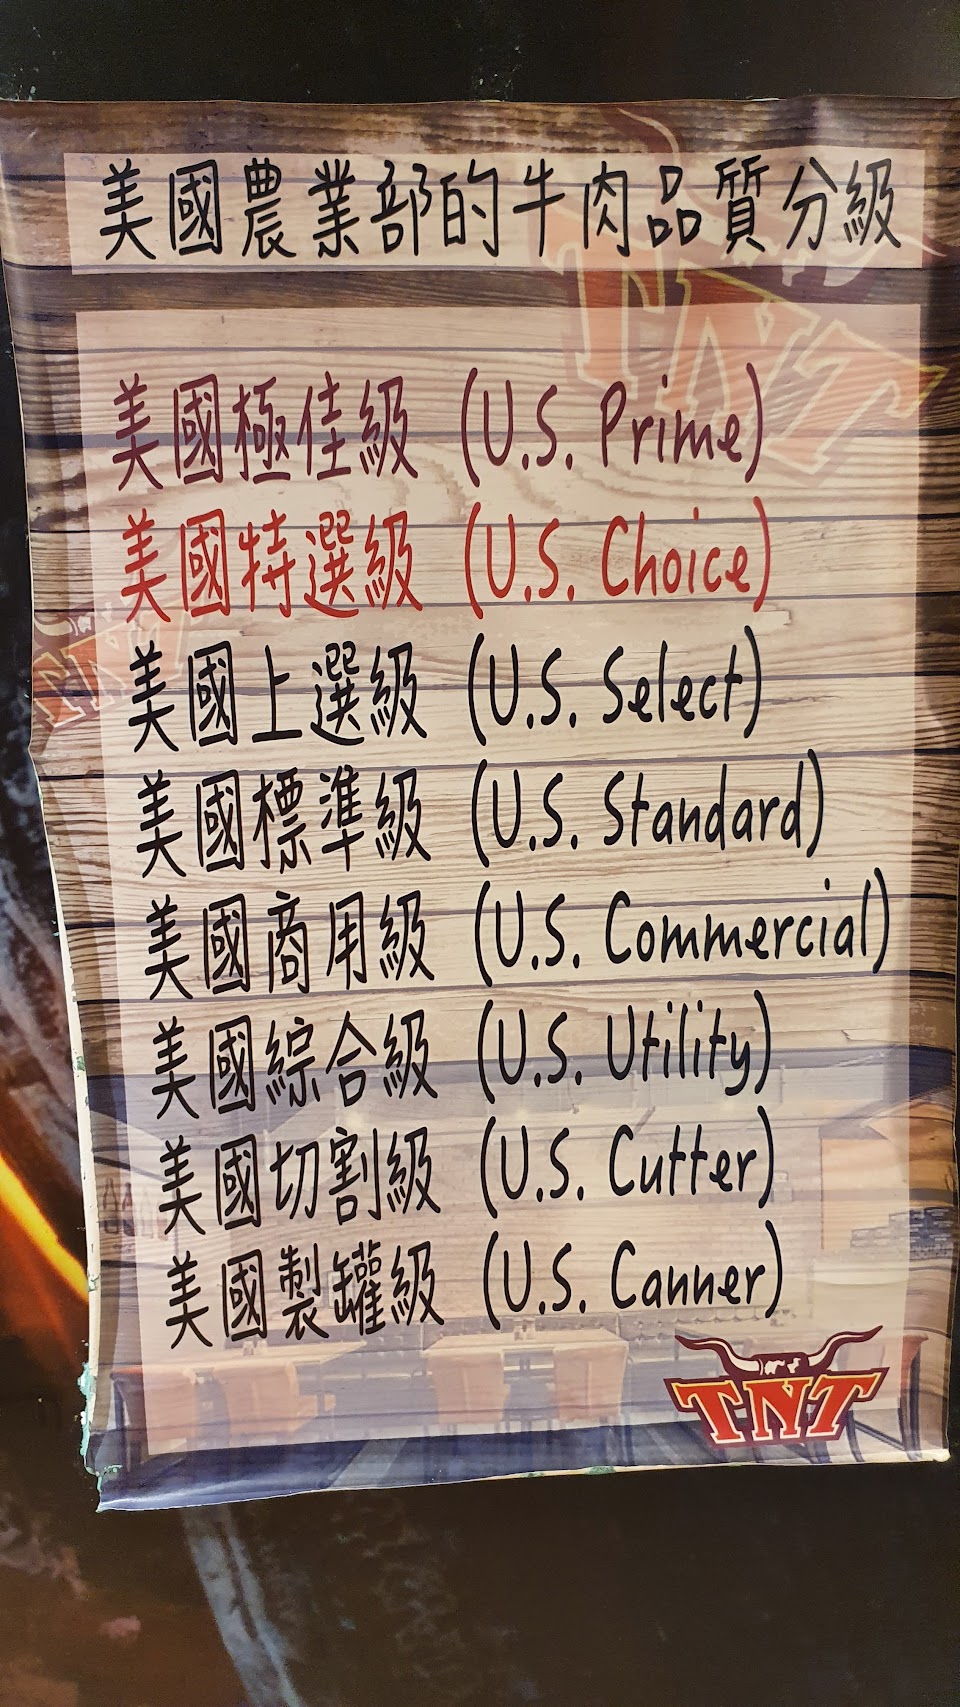 美國農業部的牛肉品質分級
美國極佳級 (U.S. Prime)
美國特選級 (U.S. Choice)
美國上選級 (U.S. Select)
美國標準級 (U.S. Standard)
美國商用級 (U.S. Commercial)
美國綜合級 (U.S. Utility)
美國切割級 (U.S. Cutter)
美國製罐級 (U.S. Canner)
TNT